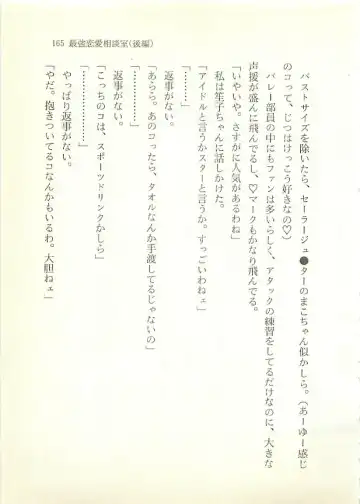 165 最強恋愛相談室(後編)
バストサイズを除いたら、セーラージュ●ターのまこちゃん似かしら。(あーゆー感じ
のコって、じつはけっこう好きなの♡)
バレー部員の中にもファンは多いらしく、アタックの練習をしてるだけなのに、大きな
声援が盛んに飛んでるし、♡マークもかなり飛んでる。
「いやいや。さすがに人気があるわね」
私は笙子ちゃんに話しかけた。
「アイドルと言うかスターと言うか。すっごいわねェ」
「…………」
返事がない。
「あらら。あのコったら、タオルなんか手渡してるじゃないの」
「…………」
返事がない。
「こっちのコは、スポーツドリンクかしら」
「…………」
やっぱり返事がない。
「やだ。抱きついてるコなんかもいるわ。大胆ねェ」